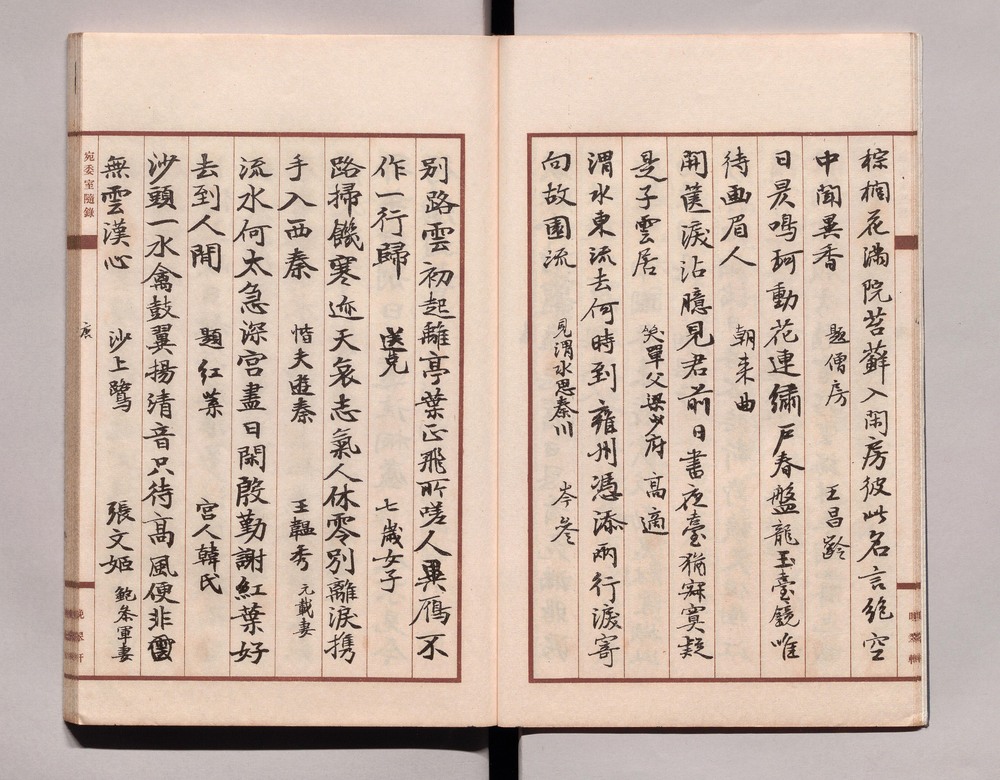 棕櫚花滿院苔蘚入閑房彼此名言絶空
中聞異香 題僧房 王昌齡
日晃鳴珂動花連繡戶春盤龍玉臺鏡唯
待画眉人 朝来曲
開篋淚沾臆見君前日書夜臺猶寂寞疑
是子雲居 哭單父梁少府 高適
渭水東流去何時到雍州憑添兩行淚寄
向故園流 見渭水思秦川 岑參
別路雲初起離亭葉正飛所嗟人異雁不
作一行歸 送兄 七歲女子
路掃饑寒迹天哀志氣人休零別離淚携
手入西秦 偕夫遊秦 王韞秀 元載妻
流水何太急深宮盡日閑殷勤謝紅葉好
去到人間 題紅葉 宮人韓氏
沙頭一水禽鼓翼揚清音只待高風便非
無雲漢心 沙上鷺 張文姬 鮑參軍妻
宛委室隨錄